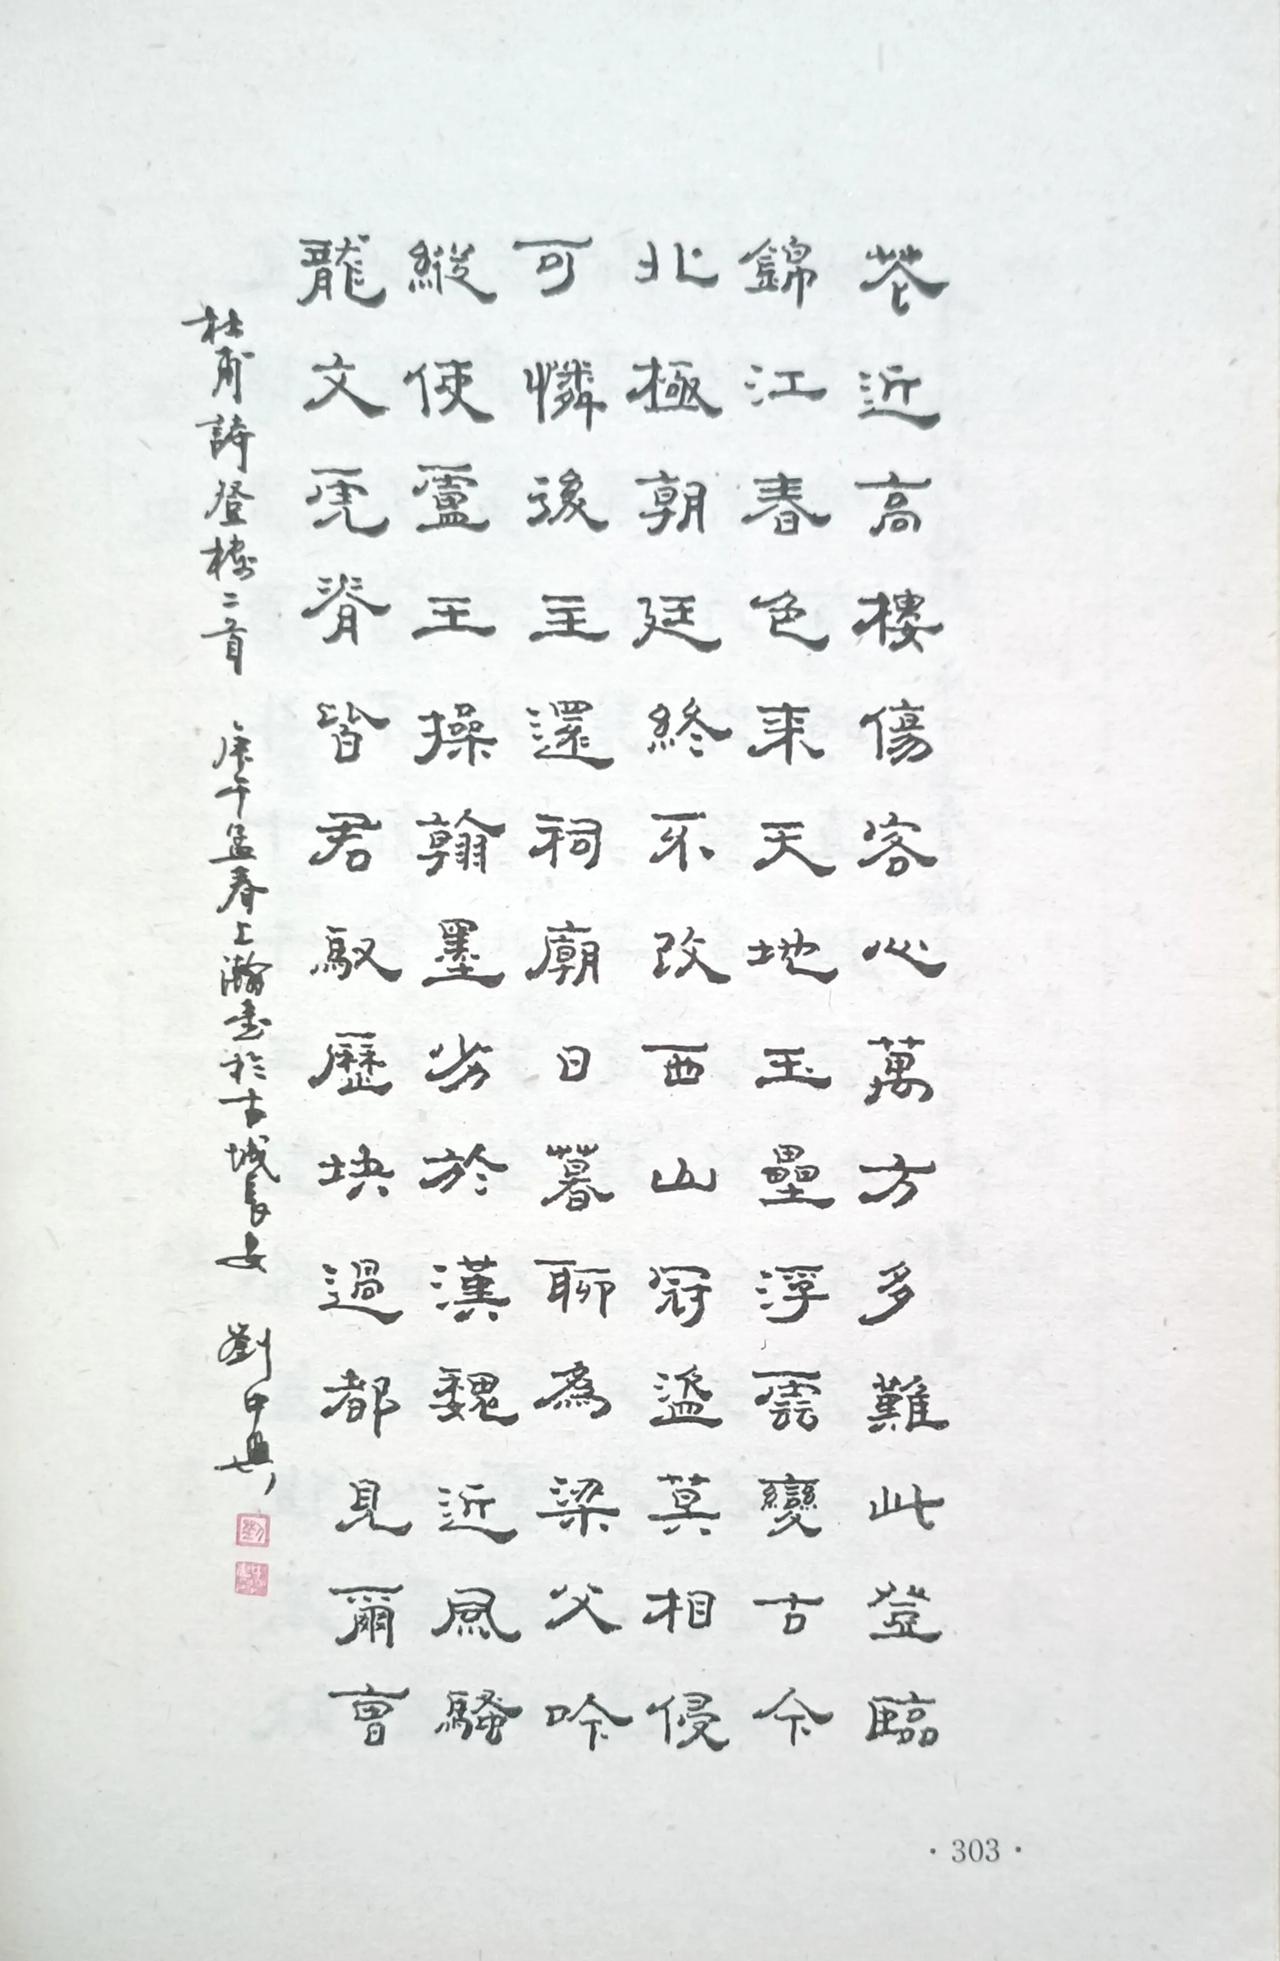 花近高樓傷客心萬方多難此登臨
錦江春色来天地玉壘浮雲變古今
北極朝廷終不改西山冦盜莫相侵
可憐後主還祠廟日暮聊為梁父吟
縱使盧王操翰墨劣於漢魏近風騷
龍文虎脊皆君馭歷塊過都見爾曹
杜甫詩登樓二首 庚午孟春上瀚書於古城長安 劉中興
·303·